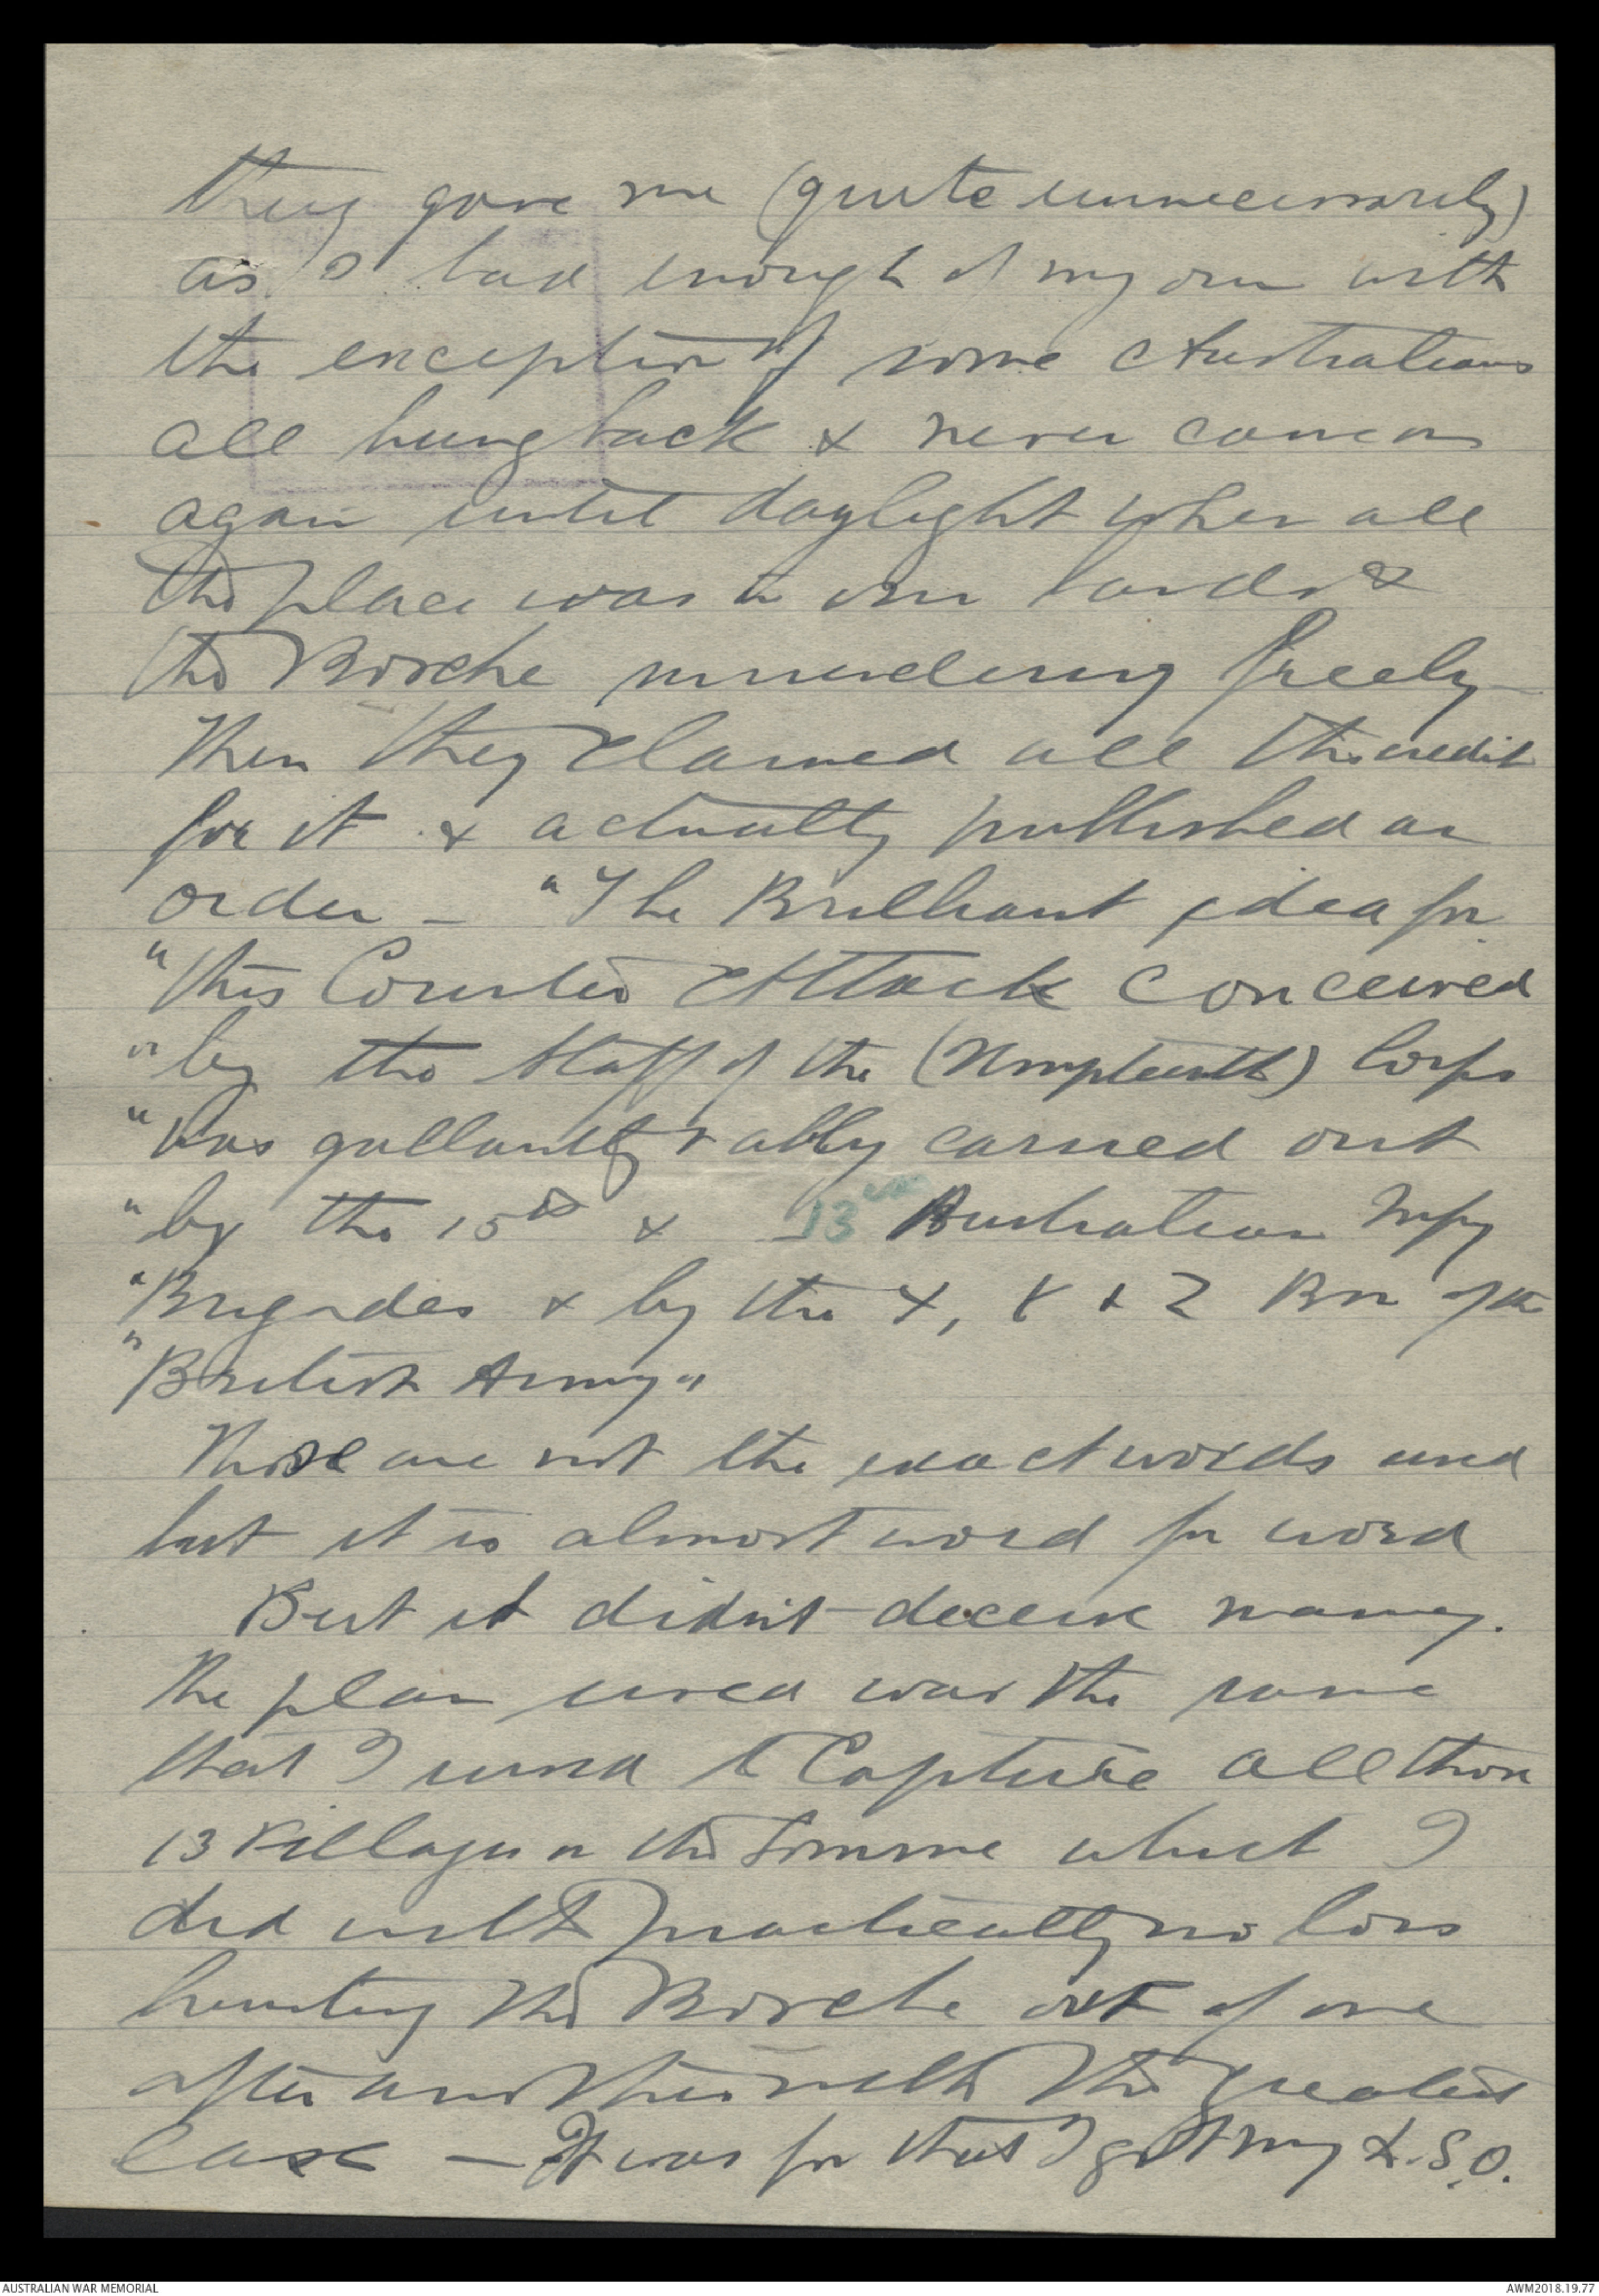 they gave me (quite unnecessarily)
as I had enough of my own with
the exception of some Australians
all hung back & never came on
again until daylight when all
the place was in our hands &
the Bosche surrendering freely
Then they claimed all the credit
for it & actually published an
order – "The Brilliant idea for
"this Counter Attack conceived
"by the Staff of the (Umpteenth) Corps
"was gallantly & ably carried out
"by the 15th & 13 Australian Infy
"Brigades & by the X, Y & Z Bn of the
"British Army"
These are not the exact words used
but it is almost word for word
But it didn't deceive many.
The plan used was the same
that I used to Capture all those
13 Villages on the Somme which I
did with practically no loss
hunting the Bosche out of one
after another with the greatest
ease – It was for that I got my D.S.O.
AUSTRALIAN WAR MEMORIAL
AWM2018.19.77